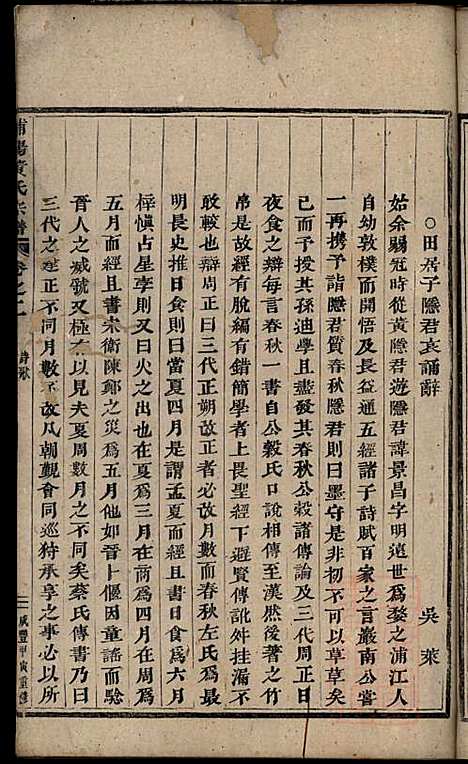 ○田居子隱君哀誦辭
吳萊
始余弱冠時從黃隱君遊隱君諱景昌字明遠世爲婺之浦江人
自幼敦樸而開悟及長益通五經諸子詩賦百家之言嚴南公嘗
一再携予詣隱君質春秋隱君則曰墨守是非扨不可以草草矣
已而予授其孫迪學具且盡發其春秋公穀諸傳論及三代周正日
夜食之辯每言春秋一書自公穀氏口說相傳至漢然後得之竹
帛是以脫有錯簡學者上畏聖經下避賢傳訛舛挂漏不
敢較也辯周正曰三代正朔改正者必改月數而春秋左氏爲
明長史推日食則曰當夏四月是謂孟夏而經且書日食爲六月
梓愼占星孛則又曰火出在夏爲三月在商爲四月在周爲
五月而經且書宋衛陳鄭之災爲五月他如晉卜偃因童謠而騐
晉人之滅虢又極有以見夫夏周數月之不同矣蔡氏傳書乃曰
三代之建正不同月數不改凡朝覲會同巡狩承享之事必以所
浦陽黃氏宗譜
卷之二
詩歌
咸豐甲寅重修